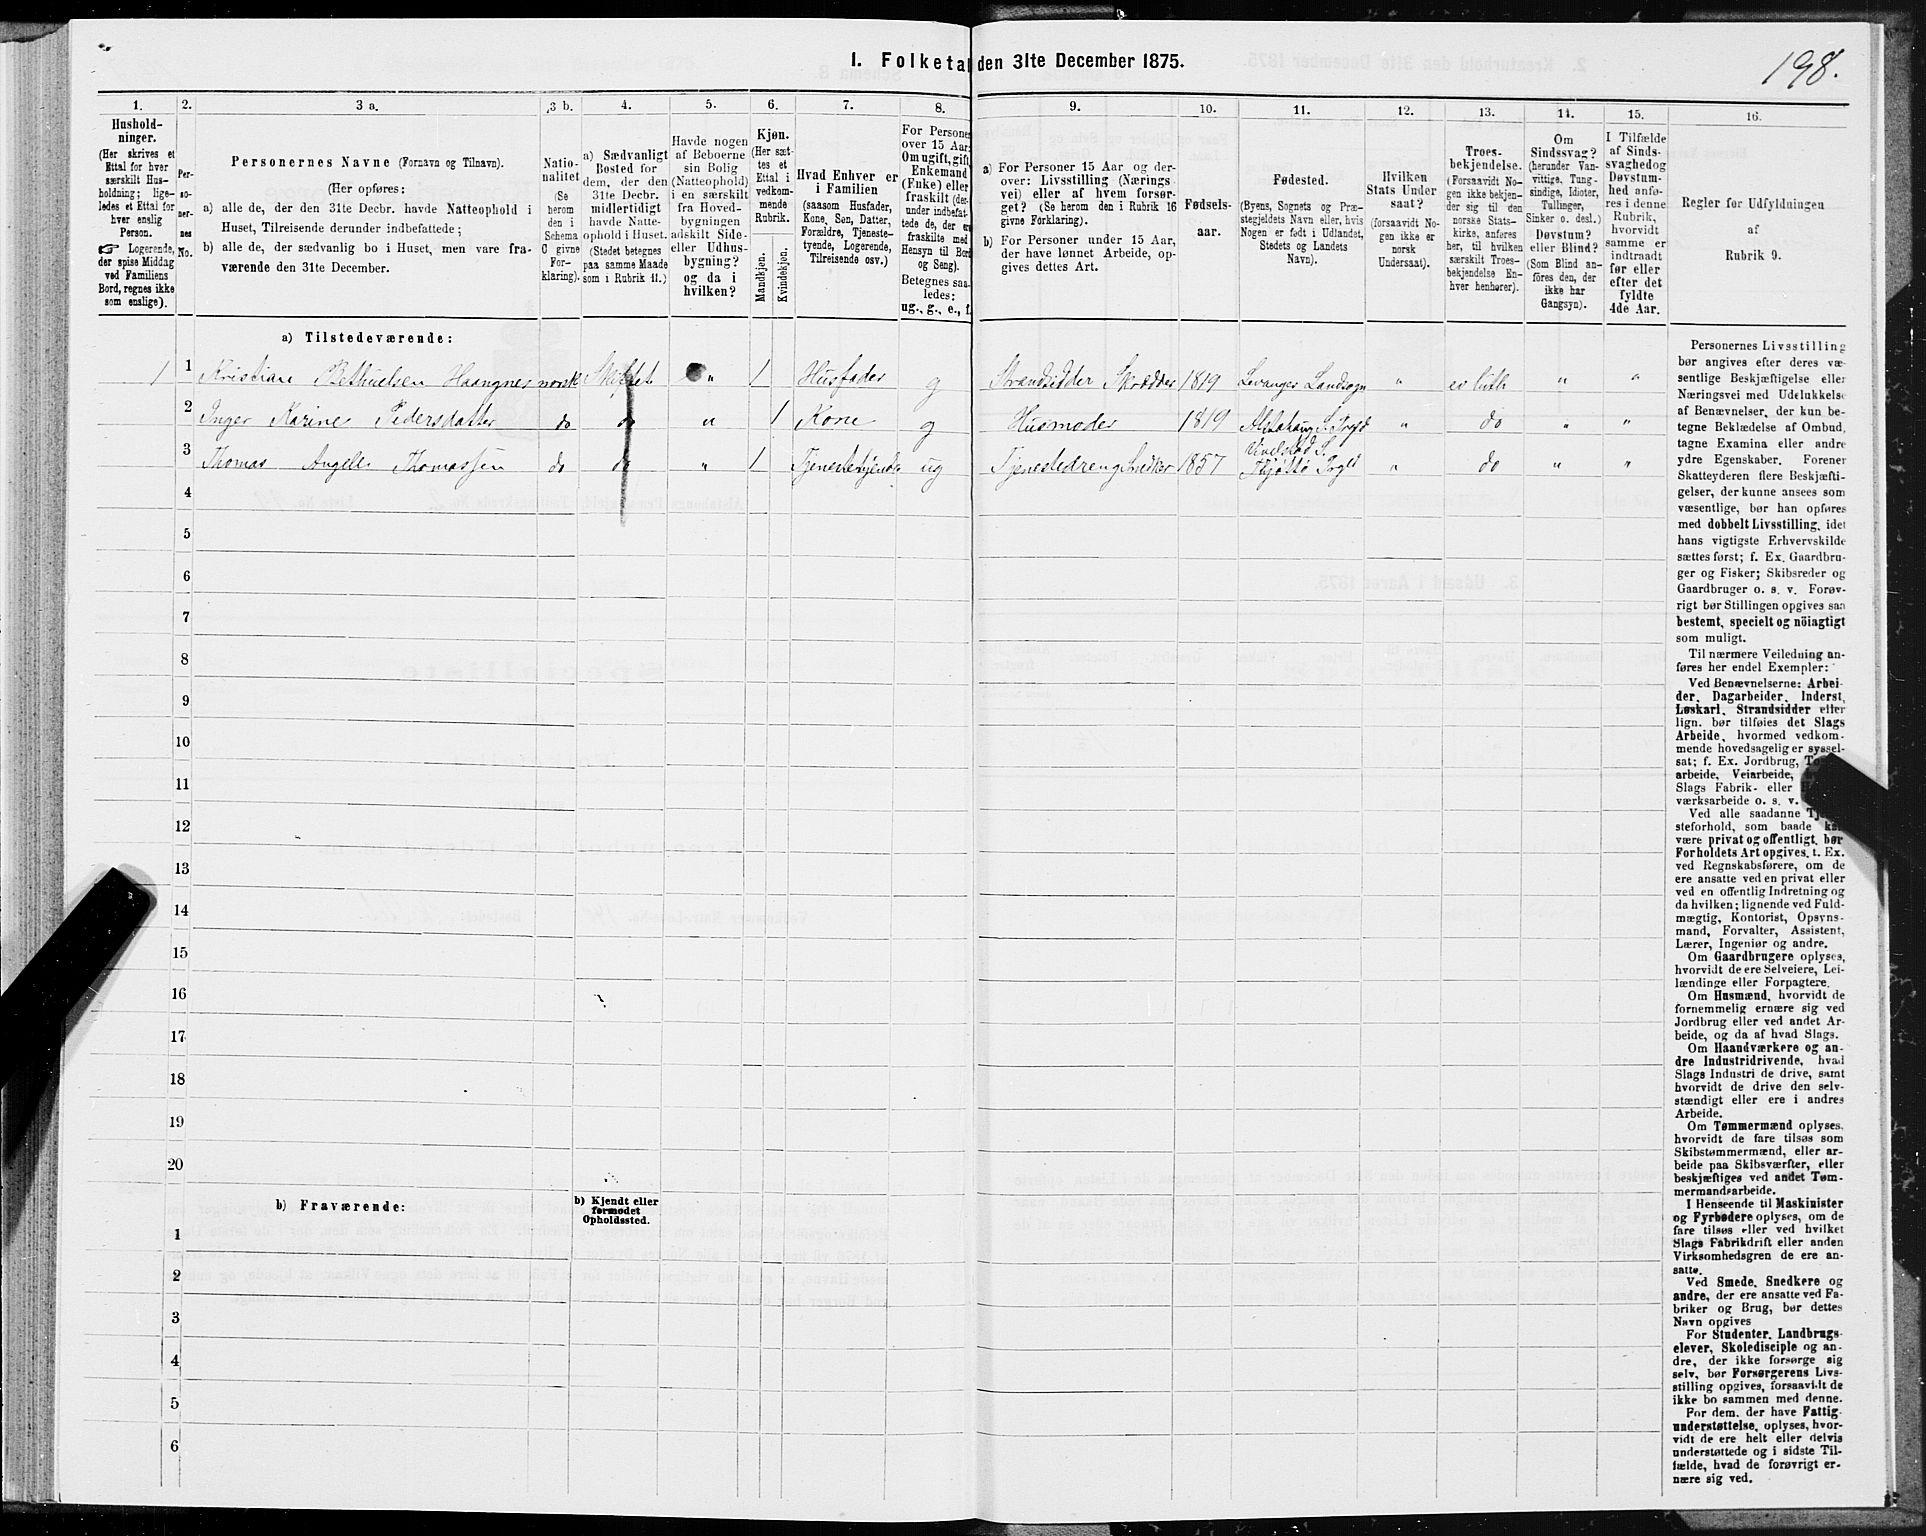 I. Folketa den 31te December 1875.
198.
1.
2.
3 a.
3 b.
4.
5.
6.
7.
8.
9.
10.
11.
12.
13.
14.
15.
16.
Hushold-
ninger.
(Her skrives et
Ettal for hver
særskilt Hus-
holdning; lige-
ledes et Ettal for
hver enslig
Person.
Logerende,
der spise Middag
ved Familiens
Bord, regnes ikke
som enslige).
Per-
so-
ner-
nes
No.
Personernes Navne (Fornavn og Tilnavn).
(Her opføres:
a) alle de, der den 31te Decbr. havde Natteophold i
Huset, Tilreisende derunder indbefattede;
b) alle de, der sædvanlig bo i Huset, men vare fra-
værende den 31te December.
Natio-
nalitet
(Se
herom
den i
Schema
C givne
For-
klaring).
a) Sædvanligt
Bosted for
dem, der den
31te Decbr.
midlertidigt
havde Natte-
ophold i Huset.
(Stedet betegnes
paa samme Maade
som i Rubrik 11.)
Havde nogen
af Beboerne
sin Bolig
(Natteophold)
i en særskilt
fra Hoved-
bygningen
adskilt Side-
eller Udhus-
bygning?
og da i
hvilken?
Kjøn.
(Her sæt-
tes et
Ettal i
vedkom-
mende
Rubrik.
Mandkjøn.
Kvindekjøn.
Hvad Enhver er
i Familien
(saasom Husfader,
Kone, Søn, Datter,
Forældre, Tjeneste-
tyende, Logerende,
Tilreisende osv.)
For Persone
over 15 Aar:
Om ugift, gift,
Enkemand
(Enke) eller
fraskilt (der-
under indbefat-
tede de, der er
fraskilte med
Hensyn til Bord
og Seng).
Betegnes saa-
ledes:
ug., g., e., f.
a) For Personer 15 Aar og der-
over: Livsstilling (Nærings
vei) eller af hvem forsør-
get? (Se herom den i Rubrik 16
givne Forklaring).
b) For Personer under 15 Aar,
der have lønnet Arbeide, op-
gives dettes Art.
Fødsels-
aar.
Fødested.
(Byens, Sognets og Præ-
stegjeldets Navn eller, hvis
Nogen er født i Udlandet,
Stedets og Landets
Navn).
Hvilken
Stats Under
saat?
(forsaavidt No-
gen ikke er
norsk
Undersaat).
Troes-
bekjendelse.
(Forsaavidt No-
gen ikke bekjen-
der sig til den
norske Stats-
kirke, anføres
her, til hvilken
særskilt Troes-
bekjendelse En-
hver henhører).
Om
Sindssvag?
(herunder Van-
vittige, Tung-
sindige, Idioter,
Tullinger,
Sinker o. desl.)
Døvstum?
eller Blind?
(Som Blind an-
føres den, der
ikke har
Gangsyn).
I Tilfælde
af Sinds-
svaghed og
Døvstum-
hed anfø-
res i denne
Rubrik,
hvorvidt
samme er
indtraadt
før eller
efter det
fyldte
4de Aar.
Regler for Udfyldningen
af
Rubrik 9.
a) Tilstedeværende:
1 1 Kristian Bethuelsen Haangnes norsk " 1 Husfader g Strandsidder Skrædder 1819 Levanger Landsogn " ev luth " "
2 Inger Karine Pedersdatter do do " 1 Kone g Husmoder 1819 Alstahaug S. Prgld " do " "
3 Thomas Angell Thomassen do do " 1 Tjenestetyende ug Tjenestedreng Snedker 1857 Vivelstad S. Thjøttø Prgld " do " "
4
5
6
7
8
9
10
11
12
13
14
15
16
17
18
19
20
b) Fraværende:
b) Kjendt eller
formødet
Opholdssted.
1
2
3
4
5
6
Personernes Livsstilling
bør angives efter deres væ-
sentlige Beskjæftigelse eller
Næringsvei med Udelukkelse
af Benævnelser, der kun be-
tegne Beklædelse af Ombud,
tagne Examina eller andre
ydre Egenskaber. Forener
Skatteyderen flere Beskjæfti-
gelser, der kunne ansees som
væsentlige, bør han opføres
med dobbelt Livsstilling, idet
hans vigtigste Erhvervskilde
sættes først; f. Ex. Gaardbru-
ger og Fisker; Skibsreder og
Gaardbruger o. s. v. Forøv-
rigt bør Stillingen opgives saa
bestemt, specielt og nöiagtigt
som muligt.
Til nærmere Veiledning an-
føres her endel Exempler:
Ved Benævnelserne: Arbei-
der, Dagarbeider, Inderst,
Løskarl, Strandsidder eller
lign. bør tilføies det Slags
Arbeide, hvormed vedkom-
mende hovedsagelig er syssel-
sat; f. Ex. Jordbrug,
arbeide, Veiarbeide,
Slags Fabrik- eller
værksarbeide o. s. v.
Ved alle saadanne
steforhold, som baade
være privat og offentligt, bør
Forholdets Art opgives, t. Ex.
ved Regnskabsførere, om de
ere ansatte ved en privat eller
ved en offentlig Indretning og
da hvilken; lignende ved Fuld-
mægtig, Kontorist, Opsyns-
mand, Forvalter, Assistent,
Lærer, Ingeniør og andre.
Om Gaardbrugere oplyses,
hvorvidt de ere Selveiere, Lei-
lændinge eller Forpagtere.
Om Husmænd, hvorvidt de
fornemmelig ernære sig ved
Jordbrug eller ved andet Ar-
beide, og da af hvad Slags.
Om Haandværkere og an-
dre Industridrivende, hvad
Slags Industri de drive, samt
hvorvidt de drive den selv-
stændigt eller ere i andres
Arbeide.
Om Tømmermænd oplyses,
hvorvidt de fare tilsøs som
Skibstømmermænd, eller ar-
beide paa Skibsværfter, eller
beskjæftiges ved andet Tøm-
mermandsarbeide.
I Henseende til Maskinister
og Fyrbødere oplyses, om de
fare tilsøs eller ved hvilket
Slags Fabrikdrift eller anden
Virksomhedsgren de ere an-
satte.
Ved Smede, Snedkere og
andre, der ere ansatte ved Fa-
briker og Brug, bør dettes
Navn opgives
For Studenter, Landbrugs-
elever, Skoledisciple og an-
dre, der ikke forsørge sig
selv, bør Forsørgerens Livs-
stilling opgives, forsaavidt de
ikke bo sammen med denne.
For dem, der have Fattig-
understøttelse, oplyses, hvor-
vidt de ere helt eller delvis
understøttede og i sidste Til-
fælde, hvad de forøvrigt er-
nære sig ved.